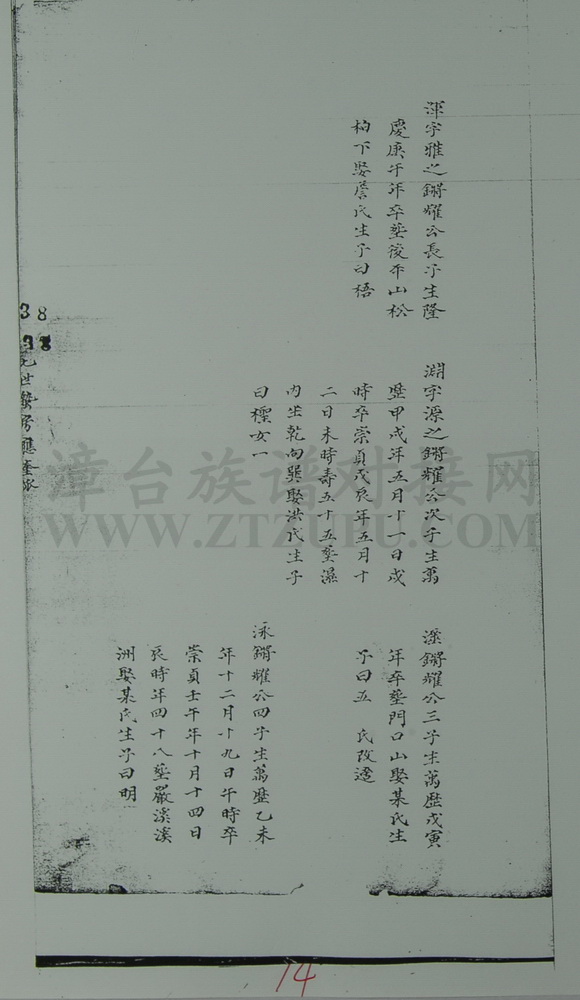 渾字雅之鏘耀公長子生隆
慶庚午年卒塟後平山松
柏下娶詹氏生子曰梧
淵字源之鏘耀公次子生萬
歷甲戌年五月十一日戌
時卒崇貞戊辰年五月十
二日未時壽五十五塟濕
內坐乾向巽娶洪氏生子
曰檉女一
鏘耀公三子生萬歷戊寅
年卒塟門口山娶某氏生
子曰五 氏改適
泳鏘耀公四子生萬歷乙未
年十二月十九日午時卒
崇貞壬午年十月十四日
辰時年四十八塟嚴溪溪
洲娶某氏生子曰明
38
38
九世
房
漳台族谱对接网
WWW.ZTZUPU.COM
14